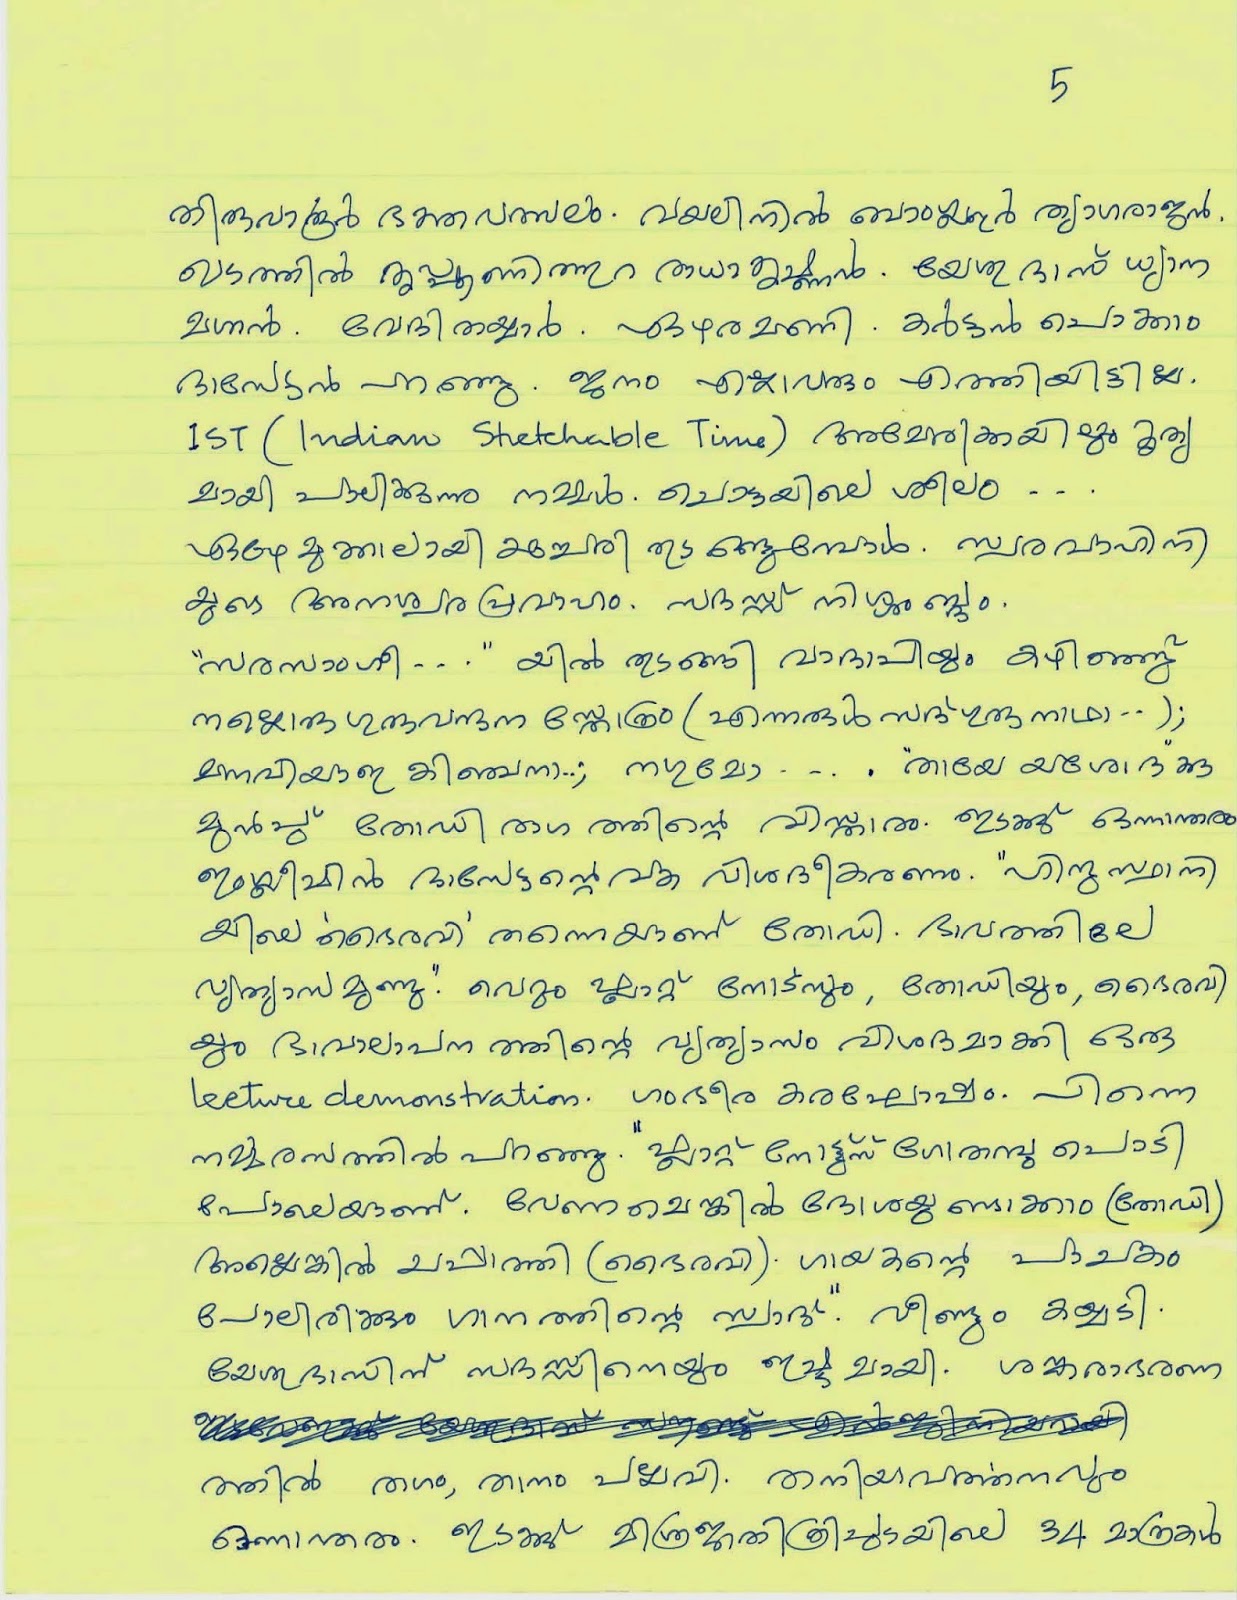 5
തിരുവാരൂർ ഭക്തവത്സലം. വയലിനിൽ ബാംഗ്ലൂർ ത്യാഗരാജൻ.
ഘടത്തിൽ തൃപ്പൂണിത്തുറ രാധാകൃഷ്ണൻ. യേശുദാസ് ധ്യാന
മഗ്നൻ. വേദി തയ്യാർ. ഏഴര മണി. കർട്ടൻ പൊക്കാം
ദാസേട്ടൻ പറഞ്ഞു. ജനം എല്ലാവരും എത്തിയിട്ടില്ല.
IST (Indian Stretchable Time) അമേരിക്കയിലും കൃത്യ
മായി പാലിക്കുന്നു നമ്മൾ. ചൊട്ടയിലെ ശീലം - - .
ഏഴേമുക്കാലായി കച്ചേരി തുടങ്ങുമ്പോൾ. സ്വരവാഹിനി
യുടെ അനശ്വര പ്രവാഹം. സദസ്സ് നിശ്ശബ്ദം.
"സരസാംഗി - - ." യിൽ തുടങ്ങി വാതാപിയും കഴിഞ്ഞ്
നല്ലൊരു ഗുരുവന്ദന സ്തോത്രം (എന്നരുൾ സദ്ഗുരു നാഥാ - - );
മനവിയാള കിഞ്ചനാ..; നഗുമോ - - . . "തായേ യശോദ" ക്കു
മുൻപ് തോഡി രാഗത്തിന്റെ വിസ്താരം. ഇടക്ക് ഒന്നാന്തരം
ഇംഗ്ലീഷിൻ ദാസേട്ടന്റെ വക വിശദീകരണം. "ഹിന്ദുസ്ഥാനി
യിലെ 'ഭൈരവി' തന്നെയാണ് തോഡി. ഭാവത്തിലേ
വ്യത്യാസമുണ്ടു". വെറും ഫ്ലാറ്റ് നോട്സും, തോഡിയും, ഭൈരവി
യും ഭാവാലാപനത്തിന്റെ വ്യത്യാസം വിശദമാക്കി ഒരു
lecture demonstration. ഗംഭീര കരഘോഷം. പിന്നെ
നർമ്മരസത്തിൽ പറഞ്ഞു. "ഫ്ലാറ്റ് നോട്ട്സ് ഗോതമ്പു പൊടി
പോലെയാണ്. വേണമെങ്കിൽ ദോശയുണ്ടാക്കാം (തോഡി)
അല്ലെങ്കിൽ ചപ്പാത്തി (ഭൈരവി). ഗായകന്റെ പാചകം
പോലിരിക്കും ഗാനത്തിന്റെ സ്വാദ്". വീണ്ടും കയ്യടി.
യേശുദാസിന് സദസ്സിനെയും ഇഷ്ടമായി. ശങ്കരാഭരണ
ത്തിൽ രാഗം, താനം പല്ലവി. തനിയാവർത്തനവും
ഒന്നാന്തരം. ഇടക്ക് മിശ്രജാതി ത്രിപുടയിലെ 34 മാത്രകൾ